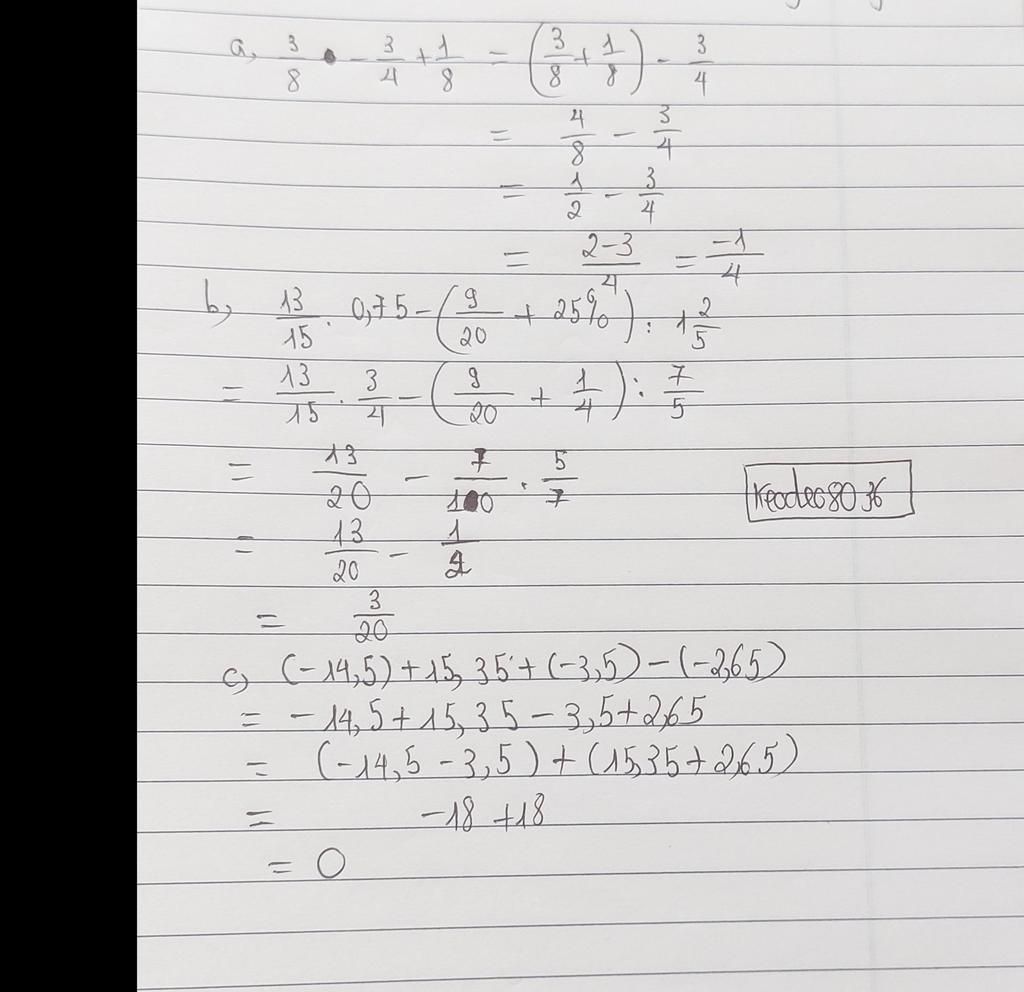 a, 3/8 - 3/4 + 1/8 = (3/8 + 1/8) - 3/4
= 4/8 - 3/4
= 1/2 - 3/4
= 2-3/4 = -1/4
b, 13/15 . 0,75 - (9/20 + 25%) : 1 2/5
= 13/15 . 3/4 - (9/20 + 1/4) : 7/5
= 13/20 - 7/10 . 5/7
keodeo8036
= 13/20 - 1/2
= 3/20
c, (-14,5) + 15,35 + (-3,5) - (-2,65)
= -14,5 + 15,35 - 3,5 + 2,65
= (-14,5 - 3,5) + (15,35 + 2,65)
= -18 + 18
= 0